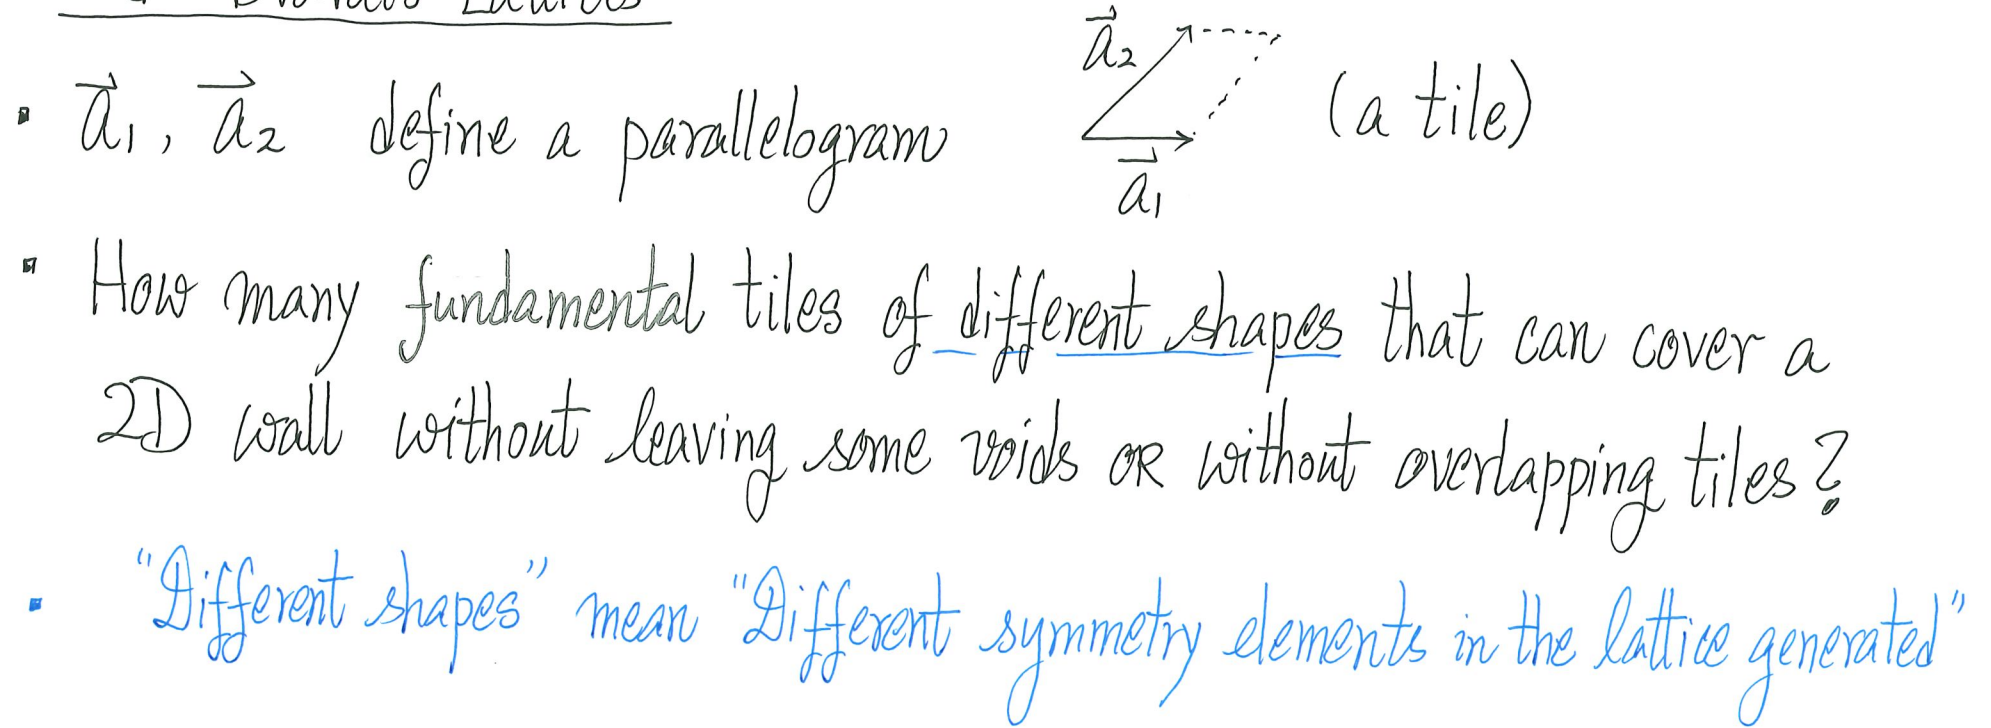 Bravais Lattices
▪ a⃗₁, a⃗₂ define a parallelogram a⃗₂ a⃗₁ (a tile)
▪ How many fundamental tiles of different shapes that can cover a
2D wall without leaving some voids OR without overlapping tiles?
▪ "Different shapes" mean "Different symmetry elements in the lattice generated"